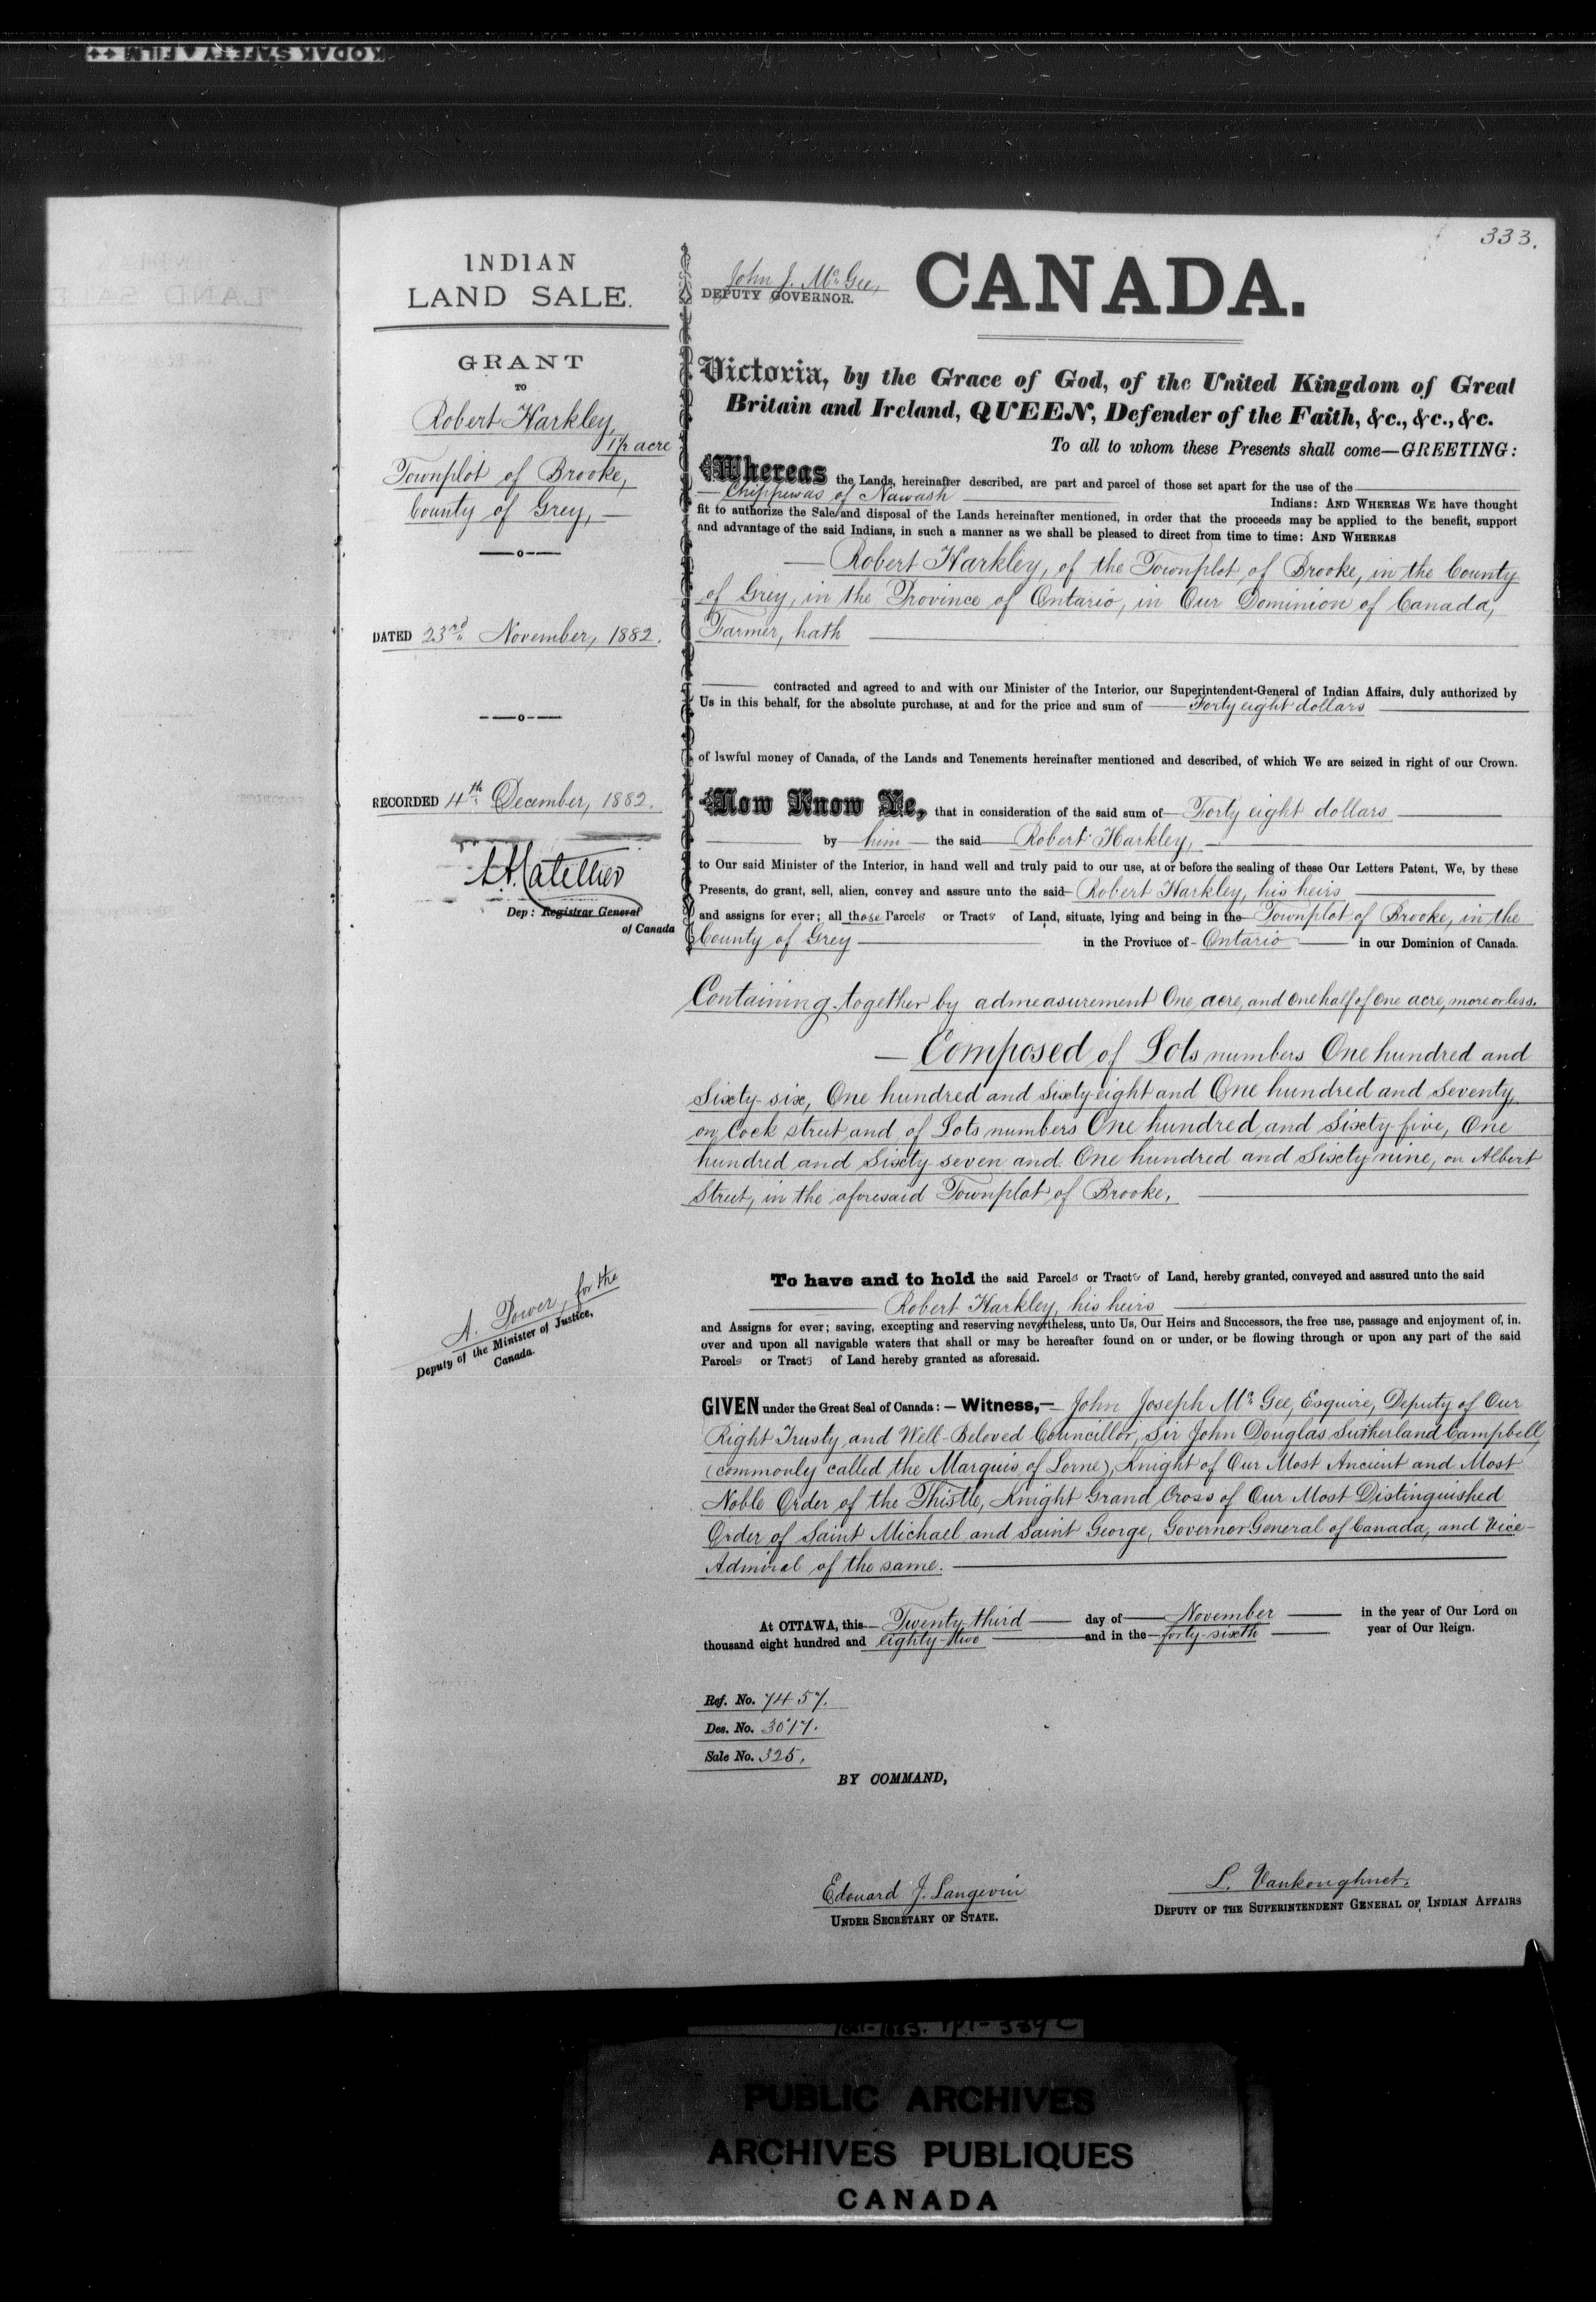 KODAK SAFETY FILM
333.
INDIAN
LAND SALE.
GRANT
TO
Robert Harkley,
1½ acre
Townplot of Brooke,
County of Grey,
DATED 23rd November, 1882.
RECORDED 4th December, 1882.
Dep: Registrar General
of Canada
A. Power, for the
Deputy of the Minister of Justice,
Canada.
John J. McGee,
DEPUTY GOVERNOR.
CANADA.
Victoria, by the Grace of God, of the United Kingdom of Great
Britain and Ireland, QUEEN, Defender of the Faith, &c., &c., &c.
To all to whom these Presents shall come—GREETING:
Whereas the Lands, hereinafter described, are part and parcel of those set apart for the use of the
Chippewas of Nawash Indians: AND WHEREAS WE have thought
fit to authorize the Sale and disposal of the Lands hereinafter mentioned, in order that the proceeds may be applied to the benefit, support
and advantage of the said Indians, in such a manner as we shall be pleased to direct from time to time: AND WHEREAS
Robert Harkley, of the Townplot of Brooke, in the County
of Grey, in the Province of Ontario, in Our Dominion of Canada,
Farmer, hath
contracted and agreed to and with our Minister of the Interior, our Superintendent-General of Indian Affairs, duly authorized by
Us in this behalf, for the absolute purchase, at and for the price and sum of Forty eight dollars
of lawful money of Canada, of the Lands and Tenements hereinafter mentioned and described, of which We are seized in right of our Crown.
Now Know Ye, that in consideration of the said sum of Forty eight dollars
by him the said Robert Harkley,
to Our said Minister of the Interior, in hand well and truly paid to our use, at or before the sealing of these Our Letters Patent, We, by these
Presents, do grant, sell, alien, convey and assure unto the said Robert Harkley, his heirs
and assigns for ever; all those Parcels or Tracts of Land, situate, lying and being in the Townplot of Brooke, in the
County of Grey in the Province of Ontario in our Dominion of Canada.
Containing together by admeasurement One acre, and One half of One acre, more or less.
Composed of Lots numbers One hundred and
Sixty-six, One hundred and Sixty-eight and One hundred and Seventy
on Cock street and of Lots numbers One hundred and Sixty-five, One
hundred and Sixty-seven and One hundred and Sixty-nine, on Albert
Street, in the aforesaid Townplot of Brooke.
To have and to hold the said Parcels or Tracts of Land, hereby granted, conveyed and assured unto the said
Robert Harkley, his heirs
and Assigns for ever; saving, excepting and reserving nevertheless, unto Us, Our Heirs and Successors, the free use, passage and enjoyment of, in,
over and upon all navigable waters that shall or may be hereafter found on or under, or be flowing through or upon any part of the said
Parcels or Tracts of Land hereby granted as aforesaid.
GIVEN under the Great Seal of Canada:—Witness,—John Joseph McGee, Esquire, Deputy of Our
Right Trusty and Well-Beloved Councillor, Sir John Douglas Sutherland Campbell
(commonly called the Marquis of Lorne), Knight of Our Most Ancient and Most
Noble Order of the Thistle, Knight Grand Cross of Our Most Distinguished
Order of Saint Michael and Saint George, Governor General of Canada, and Vice-
Admiral of the same.
At OTTAWA, this Twenty third day of November in the year of Our Lord on
thousand eight hundred and eighty-two and in the forty-sixth year of Our Reign.
Ref. No. 7457.
Des. No. 3017.
Sale No. 325.
BY COMMAND,
Edouard J. Langevin
UNDER SECRETARY OF STATE.
L. Vankoughnet.
DEPUTY OF THE SUPERINTENDENT GENERAL OF INDIAN AFFAIRS
PUBLIC ARCHIVES
ARCHIVES PUBLIQUES
CANADA